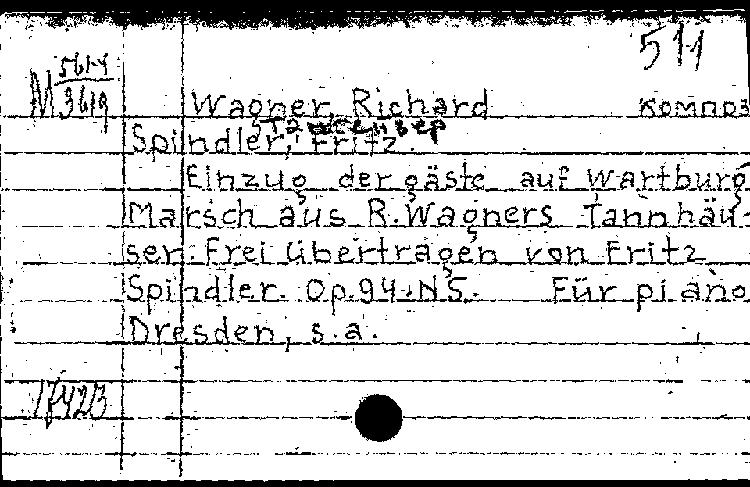 511
М 5614
3619
Wagner, Richard композ
Тангейзер
Spindler, Fritz.
Einzug der gäste auf Wartburg
Marsch aus R. Wagners Tannhäu-
ser. Frei übertragen von Fritz
Spindler. Op.94. N5. Für piano
Dresden, s.a.
17423